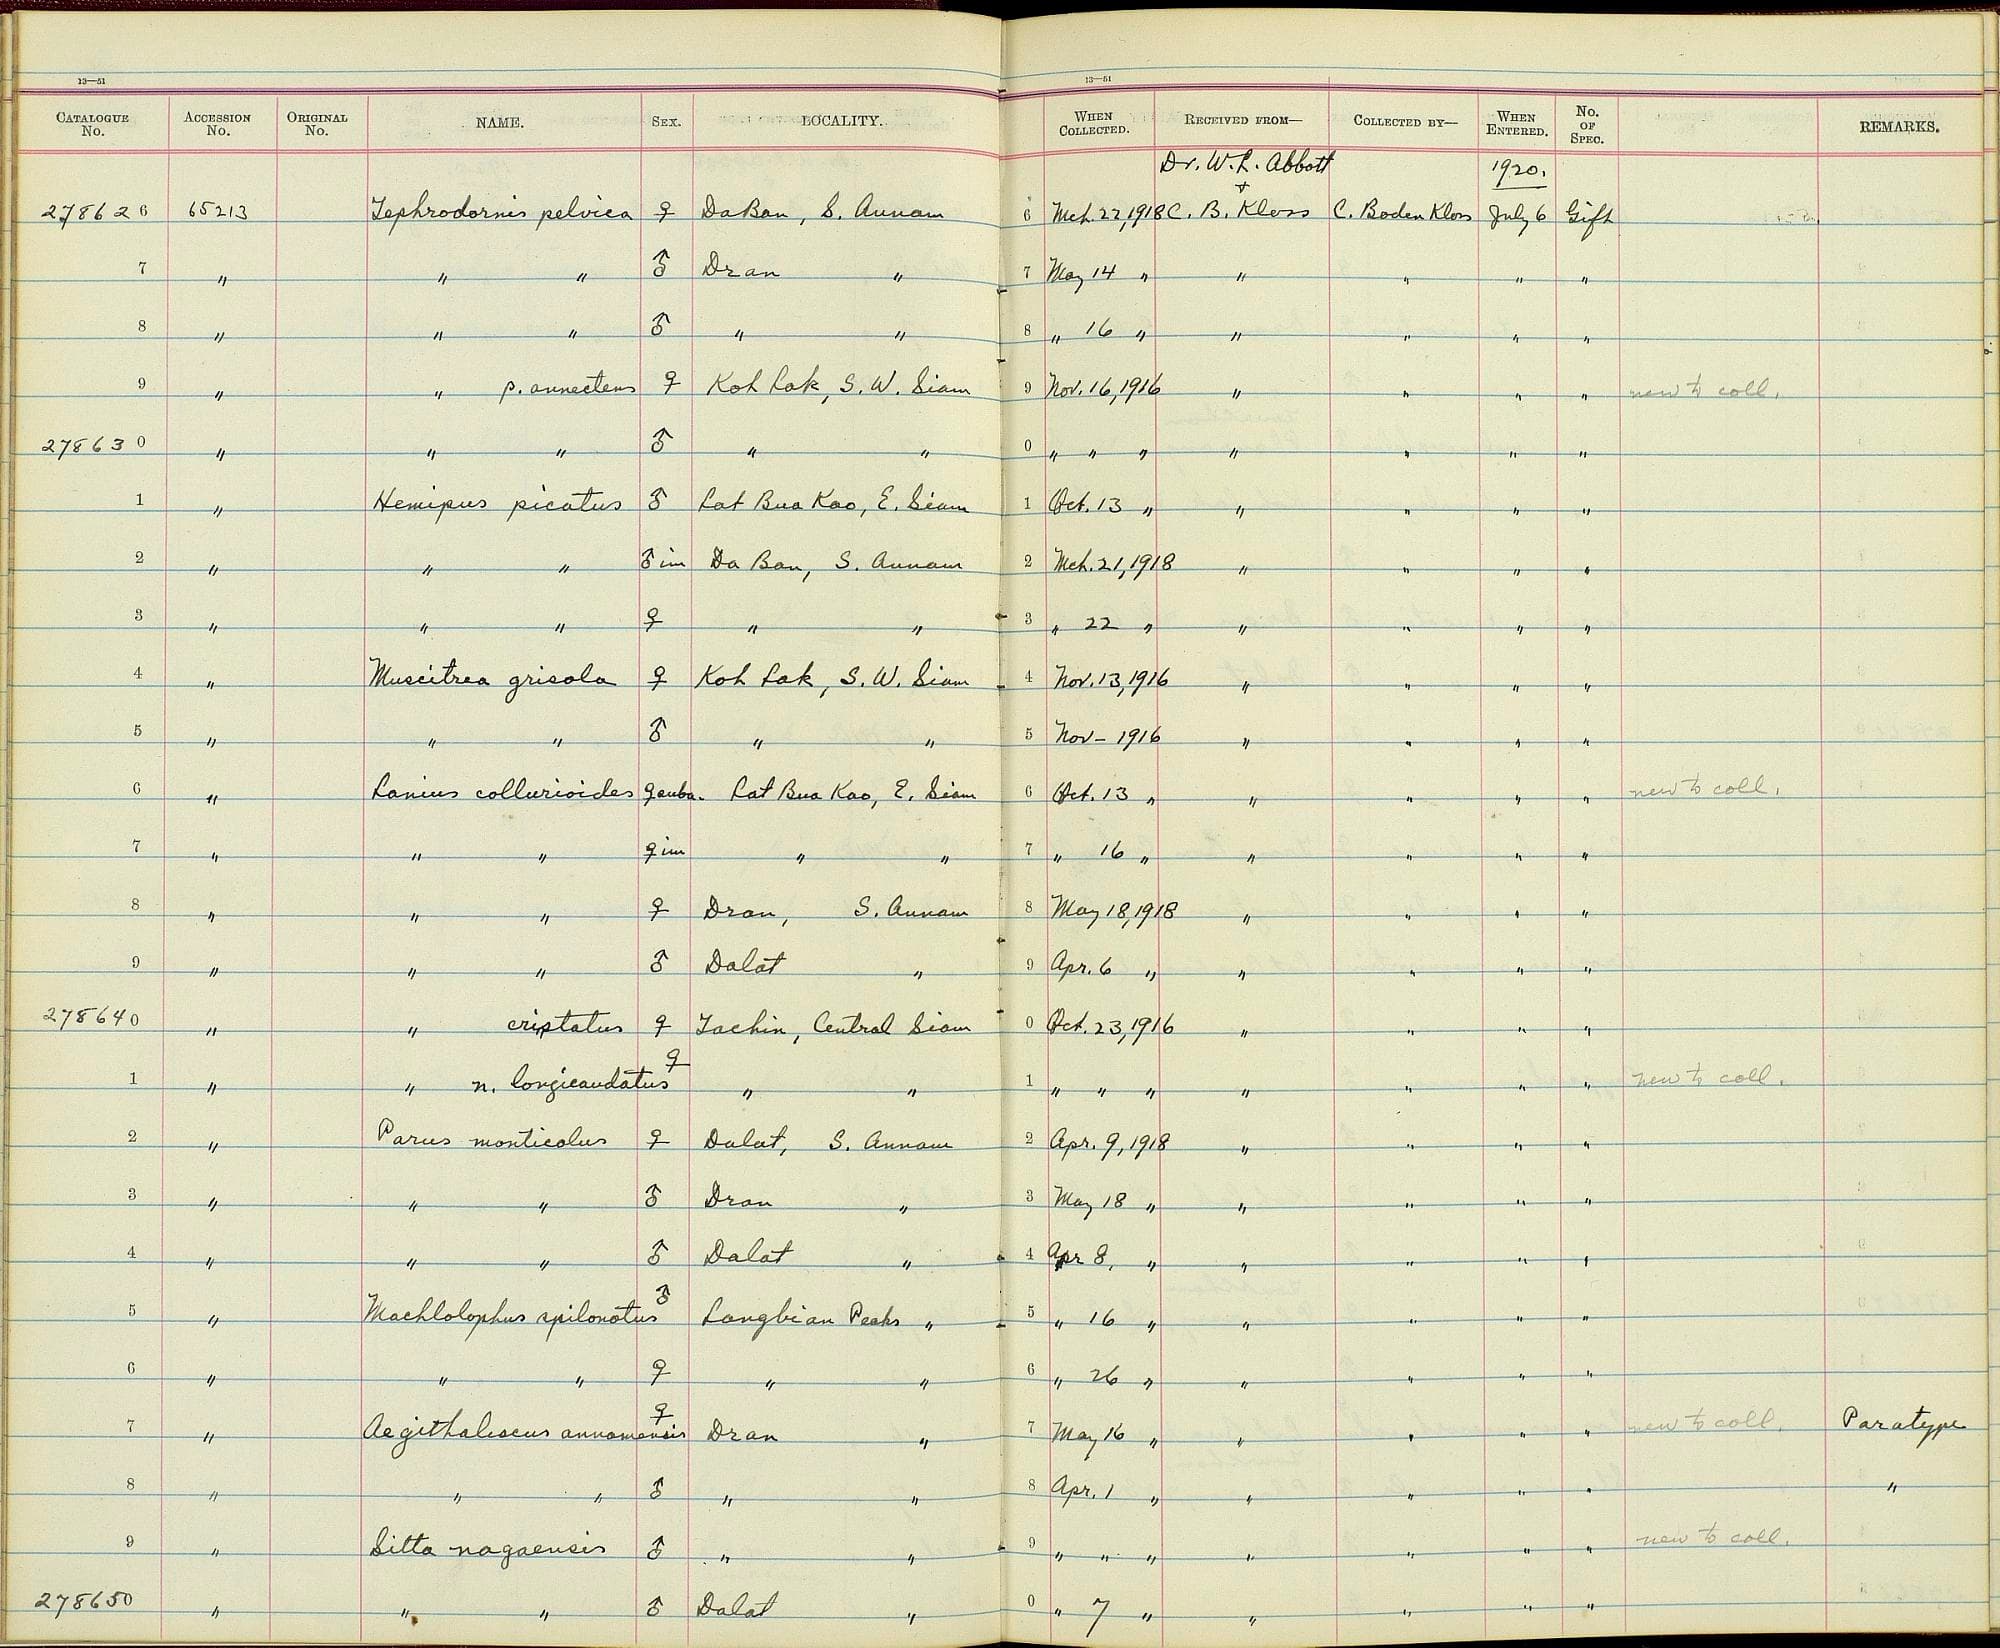 13—51 13—51
CATALOGUE No. ACCESSION No. ORIGINAL No. NAME. SEX. LOCALITY. WHEN COLLECTED. RECEIVED FROM— COLLECTED BY— WHEN ENTERED. No. OF SPEC. REMARKS.
Dr. W. L. Abbott 1920.
+
278626 65213 Tephrodornis pelvica ♀ DaBan, S. Annam 6 Mch. 22, 1918 C. B. Kloss C. Boden Kloss July 6 Gift
7 " " " ♂ Dran " 7 May 14 " " " " "
8 " " " ♂ " " 8 " 16 " " " " "
9 " " p. annectens ♀ Koh Lak, S. W. Siam 9 Nov. 16, 1916 " " " " new to coll.
278630 " " " ♂ " " 0 " " " " " " "
1 " Hemipus picatus ♂ Lat Bua Kao, E. Siam 1 Oct. 13 " " " " "
2 " " " ♂ im Da Ban, S. Annam 2 Mch. 21, 1918 " " " "
3 " " " ♀ " " 3 " 22 " " " " "
4 " Muscitrea grisola ♀ Koh Lak, S. W. Siam 4 Nov. 13, 1916 " " " "
5 " " " ♂ " " 5 Nov – 1916 " " " "
6 " Lanius collurioides ♀ Lat Bua Kao, E. Siam 6 Oct. 13 " " " " " new to coll.
7 " " " ♀ im " " 7 " 16 " " " " "
8 " " " ♀ Dran, S. Annam 8 May 18, 1918 " " " "
9 " " " ♂ Dalat " 9 Apr. 6 " " " " "
278640 " " cristatus ♀ Tachin, Central Siam 0 Oct. 23, 1916 " " " "
1 " " n. longicaudatus ♀ " " 1 " " " " " " " new to coll.
2 " Parus monticolus ♀ Dalat, S. Annam 2 Apr. 9, 1918 " " " "
3 " " " ♂ Dran " 3 May 18 " " " " "
4 " " " ♂ Dalat " 4 Apr 8, " " " " "
5 " Machlolophus spilonotus ♂ Langbian Peaks " 5 " 16 " " " " "
6 " " " ♀ " " 6 " 26 " " " " "
7 " Aegithaliscus annamensis ♀ Dran " 7 May 16 " " " " " new to coll. Paratype
8 " " " ♂ " " 8 Apr. 1 " " " " " "
9 " Sitta nagaensis ♂ " " 9 " " " " " " " new to coll.
278650 " " " ♂ Dalat " 0 " 7 " " " " "